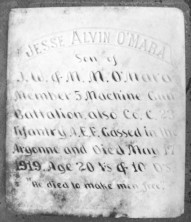 JESSE ALVIN O'MARA
Son of
J. W. & M. M. O'Mara
Member 5 Machine Gun
Battalion, also Co. C. 23
Infantry A.E.F. Gassed in the
Argonne and Died May
1919. Age 20 Ys & 10 Ds
He died to make men free.